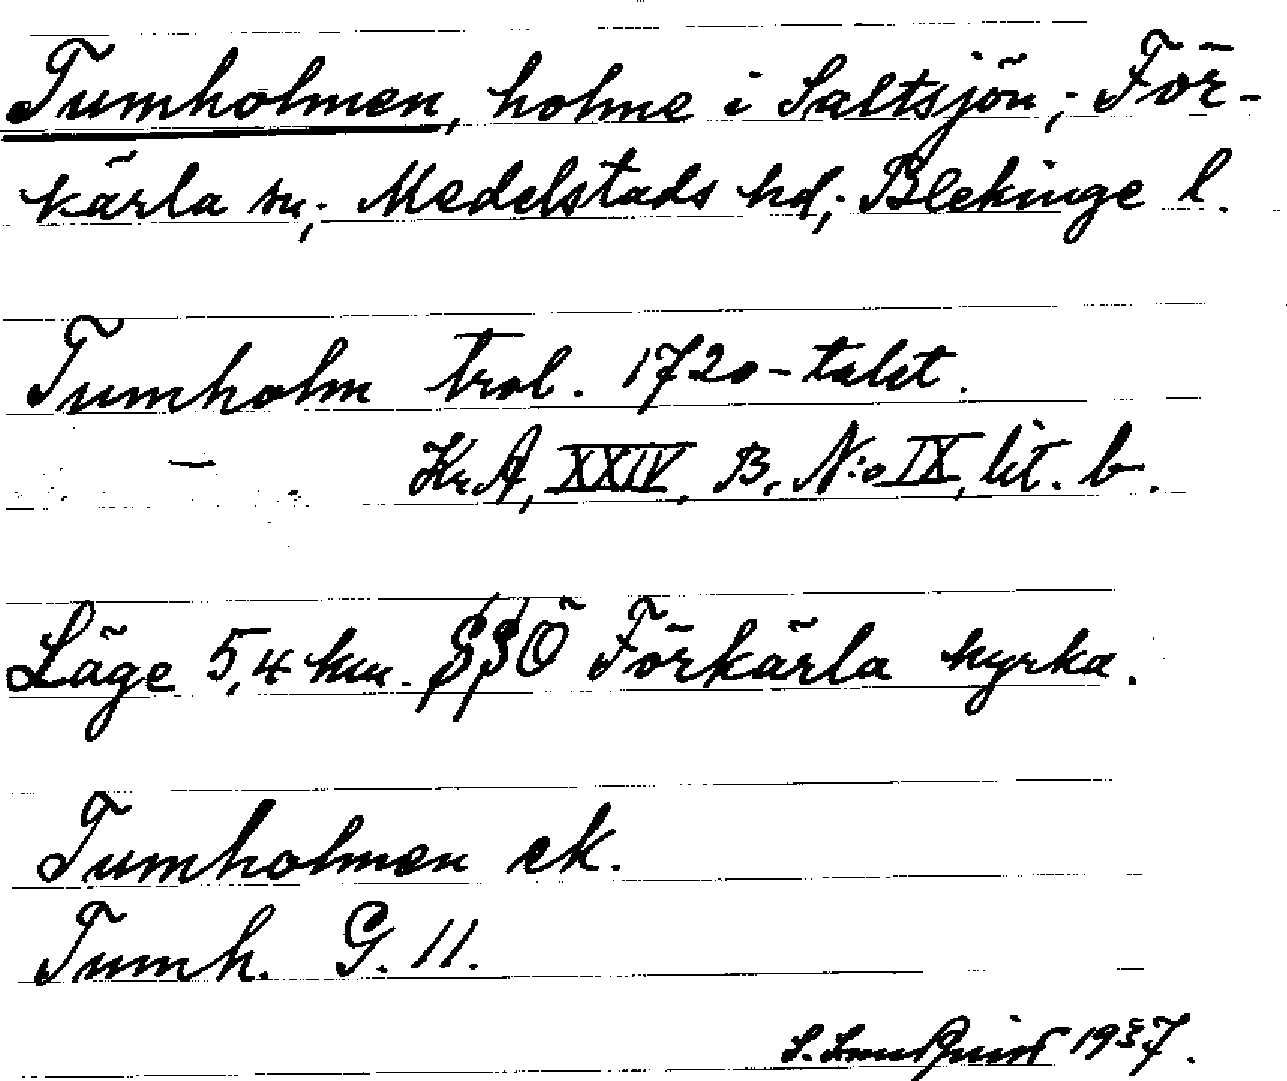 Tumholmen, holme i Saltsjön; För-
kärla sn; Medelstads hd; Blekinge l.
Tumholm trol. 1720-talet.
— Kr A, XXIV, B, N:o IX, lit. b.
Läge 5,4 km. SSÖ Förkärla kyrka.
Tumholmen ek.
Tumh. G. 11.
S. 1937.